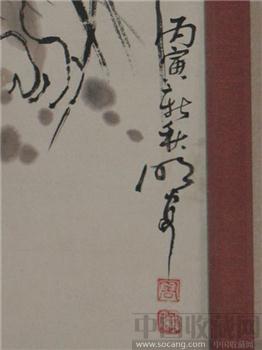 丙寅新秋明安
中国收藏网
www.socang.com 中国收藏网